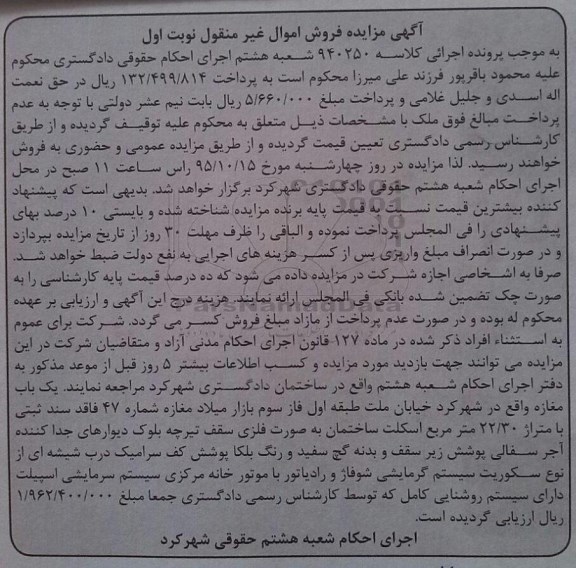 آگهی مزایده فروش اموال غیر منقول نوبت اول
به موجب پرونده اجرائی کلاسه ۹۴۰۲۵۰ شعبه هشتم اجرای احکام حقوقی دادگستری محکوم
علیه محمود باقرپور فرزند علی میرزا محکوم است به پرداخت ۱۳۲/۴۹۹/۸۱۴ ریال در حق نعمت
اله اسدی و جلیل غلامی و پرداخت مبلغ ۵/۶۶۰/۰۰۰ ریال بابت نیم عشر دولتی با توجه به عدم
پرداخت مبالغ فوق ملک با مشخصات ذیل متعلق به محکوم علیه توقیف گردیده و از طریق
کارشناس رسمی دادگستری تعیین قیمت گردیده و از طریق مزایده عمومی و حضوری به فروش
خواهند رسید. لذا مزایده در روز چهارشنبه مورخ ۹۵/۱۰/۱۵ راس ساعت ۱۱ صبح در محل
اجرای احکام شعبه هشتم حقوقی دادگستری شهرکرد برگزار خواهد شد. بدیهی است که پیشنهاد
کننده بیشترین قیمت نسبت به قیمت پایه برنده مزایده شناخته شده و بایستی ۱۰ درصد بهای
پیشنهادی را فی المجلس پرداخت نموده و الباقی را ظرف مهلت ۳۰ روز از تاریخ مزایده بپردازد
و در صورت انصراف مبلغ واریزی پس از کسر هزینه های اجرایی به نفع دولت ضبط خواهد شد.
صرفا به اشخاصی اجازه شرکت در مزایده داده می شود که ده درصد قیمت پایه کارشناسی را به
صورت چک تضمین شده بانکی فی المجلس ارائه نمایند. هزینه درج این آگهی و ارزیابی بر عهده
محکوم له بوده و در صورت عدم پرداخت از مازاد مبلغ فروش کسر می گردد. شرکت برای عموم
به استثناء افراد ذکر شده در ماده ۱۲۷ قانون اجرای احکام مدنی آزاد و متقاضیان شرکت در این
مزایده می توانند جهت بازدید مورد مزایده و کسب اطلاعات بیشتر ۵ روز قبل از موعد مذکور به
دفتر اجرای احکام شعبه هشتم واقع در ساختمان دادگستری شهرکرد مراجعه نمایند. یک باب
مغازه واقع در شهرکرد خیابان ملت طبقه اول فاز سوم بازار میلاد مغازه شماره ۴۷ فاقد سند ثبتی
با متراژ ۲۲/۳۰ متر مربع اسکلت ساختمان به صورت فلزی سقف تیرچه بلوک دیوارهای جدا کننده
آجر سفالی پوشش زیر سقف و بدنه گچ سفید و رنگ بلکا پوشش کف سرامیک درب شیشه ای از
نوع سکوریت سیستم گرمایشی شوفاژ و رادیاتور با موتور خانه مرکزی سیستم سرمایشی اسپیلت
دارای سیستم روشنایی کامل که توسط کارشناس رسمی دادگستری جمعا مبلغ ۱/۹۶۲/۴۰۰/۰۰۰
ریال ارزیابی گردیده است.
اجرای احکام شعبه هشتم حقوقی شهرکرد